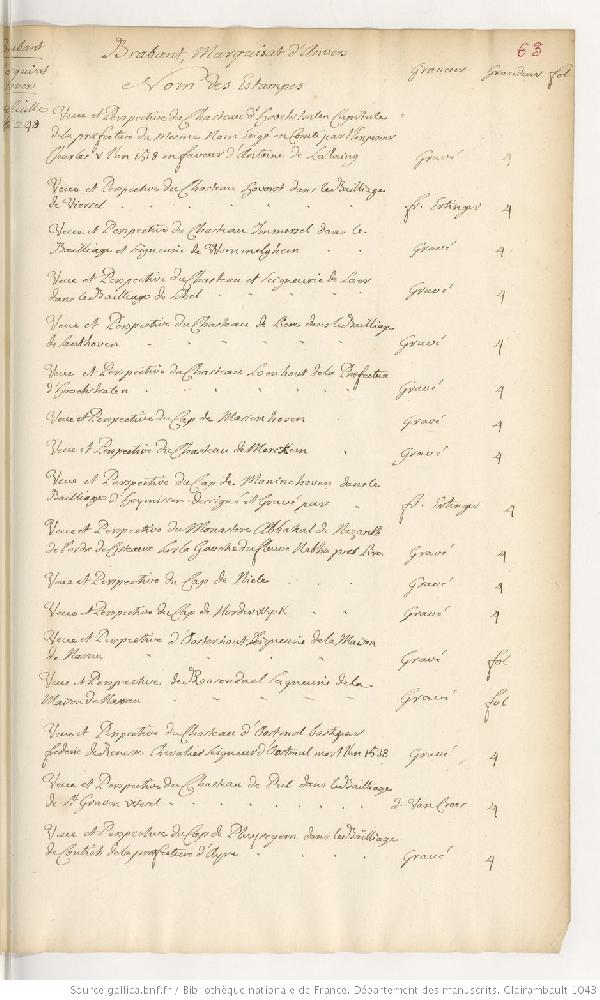 Brabant, Marquisat d'Anvers 63
Nom des Estampes Graveur Grandeur fol
Brabant
249
Veue et Perspective du Chasteau d'Hoochstraten Capitale
de la prefecture du mesme Nom Erigé en Comté par l'Empereur
Charles V l'an 1518 en faveur d'Antoine de Lalaing Gravé 4
Veue et Perspective du Chasteau dans le Bailliage
de Viersel fr. Ertinger 4
Veue et Perspective du Chasteau Immersel dans le
Bailliage et Seigneurie de Wommelghem Gravé 4
Veue et Perspective du Chasteau et Seigneurie de Laer
dans le Bailliage de Gravé 4
Veue et Perspective du Chasteau de Liere dans le Bailliage
de Santhoven Gravé 4
Veue et Perspective du Chasteau Loenhout de la Prefecture
d'Hoochstraten Gravé 4
Veue et Perspective du Cap de Massenhoven Gravé 4
Veue et Perspective du Chasteau de Merckem Gravé 4
Veue et Perspective du Cap de Maninchoven dans le
Bailliage d'Heymissen designé et Gravé par fr. Ertinger 4
Veue et Perspective du Monastere Abbatial de Nazareth
de l'ordre de Cisteaux sur la Gauche du fleuve Netha pres Lira Gravé 4
Veue et Perspective du Cap de Niele Gravé 4
Veue et Perspective du Cap de Norderwyk Gravé 4
Veue et Perspective d'Oosterhout Seigneurie de la Maison
de Nassau Gravé fol
Veue et Perspective de Roosendael Seigneurie de la
Maison de Nassau Gravé fol
Veue et Perspective du Chasteau d'Oostmal basti par
frederic de Renesse Chevalier Seigneur d'Oostmal mort l'an 1538 Gravé 4
Veue et Perspective du Chasteau de Pul dans le Bailliage
de St Graven Wesel J. Van Croes 4
Veue et Perspective du Cap de Pluysegem dans le Bailliage
de Contich de la prefecture d'Ayre Gravé 4
Source gallica.bnf.fr / Bibliothèque nationale de France. Département des manuscrits. Clairambault 1043